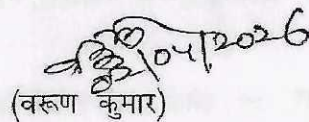 /04/2026
(वरूण कुमार)